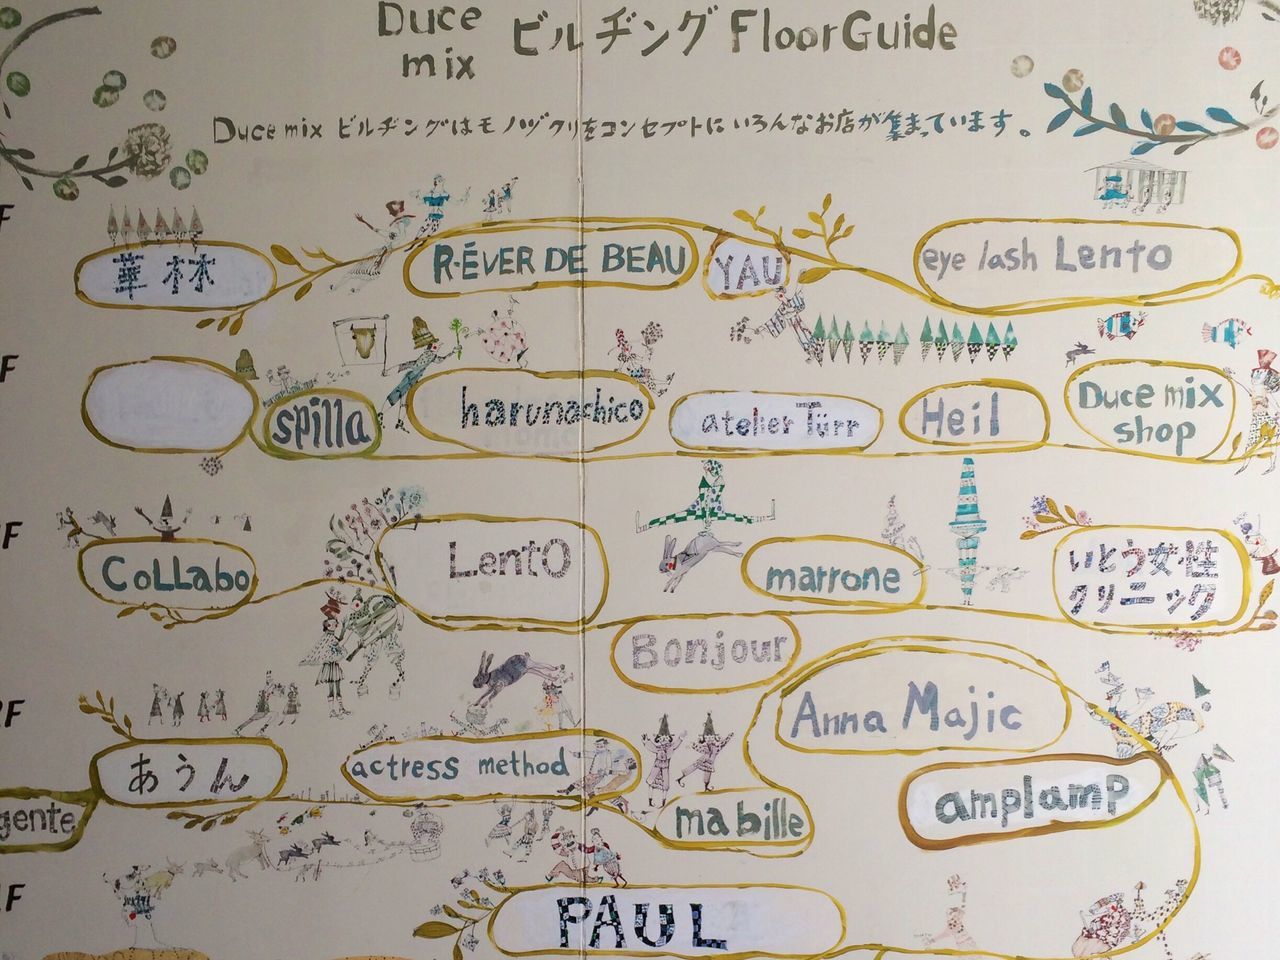 Duce mix ビルヂング FloorGuide
Duce mix ビルヂングはモノヅクリをコンセプトにいろんなお店が集まっています。
F
華林
R・ÉVER DE BEAU
YAU
eye lash Lento
F
spilla
harunachico
atelier Türr
Heil
Duce mix
shop
F
CoLLabo
LentO
marrone
いとう女性
クリニック
Bonjour
F
Anna Majic
あうん
actress method
amplamp
gente
mabille
F
PAUL